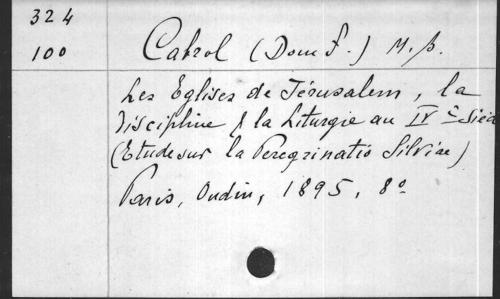 324
100
Cabrol (Dom F.) M. B.
Les Eglises de Jérusalem, la
Discipline & la Liturgie au IVe Siècl
(Etude sur la Peregrinatio Silviae)
Paris, Oudin, 1895, 8o